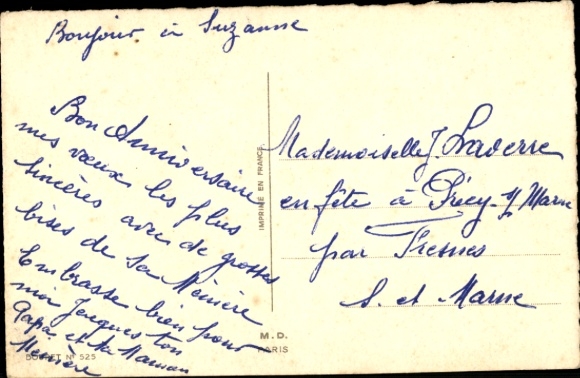 Bonjour à Suzanne
Bon Anniversaire
mes vœux les plus
sincères avec de grosses
bises de ta Mémère
Embrasse bien pour
moi Jacques ton
Papa et ta Maman
Mémère
BOUQUET N° 525
IMPRIMÉ EN FRANCE
M.D.
PARIS
Mademoiselle J. Laverre
en fête à Précy-s/Marne
par Fresnes
S. et Marne